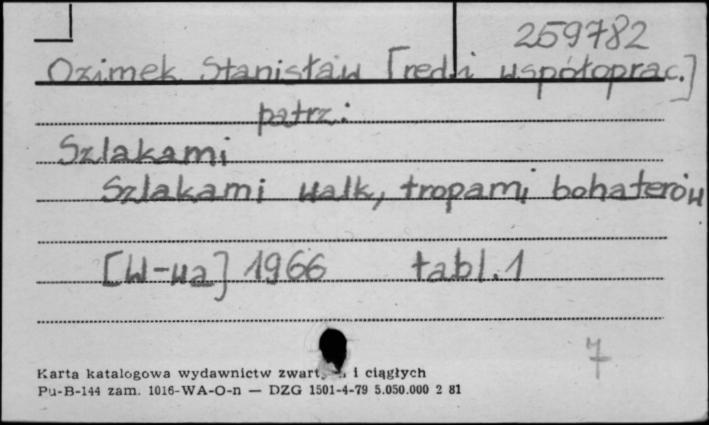 259782
Ozimek Stanisław [red. i współoprac.]
patrz:
Szlakami
Szlakami walk, tropami bohaterów
[W-wa] 1966 tabl. 1
7
Karta katalogowa wydawnictw i ciągłych
Pu-B-144 zam. 1016-WA-O-n — DZG 1501-4-79 5.050.000 2 81